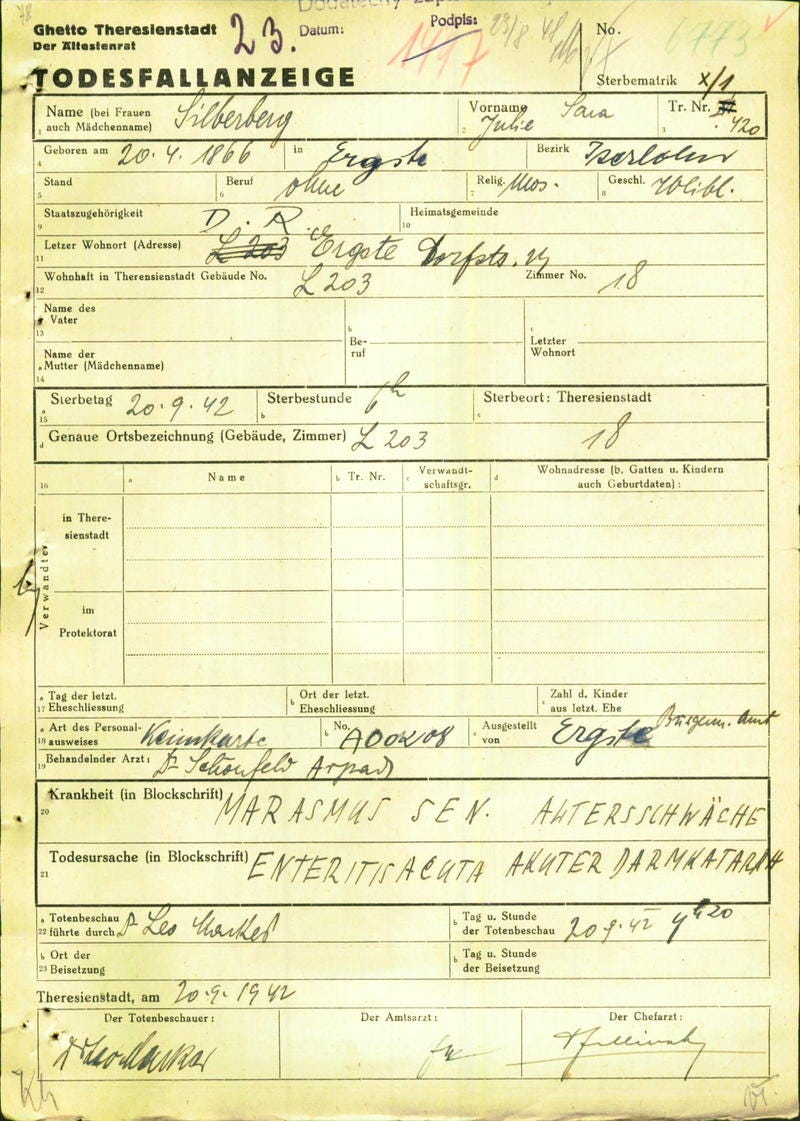 78
Ghetto Theresienstadt
Der Ältestenrat
23. Datum: Podpis: 23/8 48
No.
1497 6773
TODESFALLANZEIGE
Sterbematrik X/1
Name (bei Frauen auch Mädchenname) Silberberg
1
Vorname Julie Sara
2
Tr. Nr. 420
3
Geboren am 20.4.1866 in Ergste Bezirk Iserlohn
4
Stand Beruf ohne Relig. Mos. Geschl. Weibl.
5 6 7 8
Staatszugehörigkeit D.R. Heimatsgemeinde
9 10
Letzer Wohnort (Adresse) L 203 Ergste
11
Wohnhaft in Theresienstadt Gebäude No. L 203 Zimmer No. 18
12
Name des Vater
13
b Beruf
c Letzter Wohnort
Name der
a Mutter (Mädchenname)
14
a Sterbetag 20.9.42 b Sterbestunde 6h c Sterbeort: Theresienstadt
15
d Genaue Ortsbezeichnung (Gebäude, Zimmer) L 203 18
16 a Name b Tr. Nr. c Verwandt-schaftsgr. d Wohnadresse (b. Gatten u. Kindern auch Geburtdaten):
Verwandter
in There-
sienstadt
im
Protektorat
a Tag der letzt. b Ort der letzt. c Zahl d. Kinder
17 Eheschliessung Eheschliessung aus letzt. Ehe
a Art des Personal- Kennkarte b No. A00208 c Ausgestellt Ergste
18 ausweises von
Behandelnder Arzt: Dr Schönfeld Arpad
19
Krankheit (in Blockschrift) MARASMUS SEN. ALTERSSCHWÄCHE
20
Todesursache (in Blockschrift) ENTERITIS ACUTA AKUTER DARMKATARRH
21
a Totenbeschau Dr Leo b Tag u. Stunde
22 führte durch der Totenbeschau 20.9.42 9h20
b Ort der b Tag u. Stunde
23 Beisetzung der Beisetzung
Theresienstadt, am 20.9.1942
Der Totenbeschauer: Der Amtsarzt: Der Chefarzt:
Dr Leo